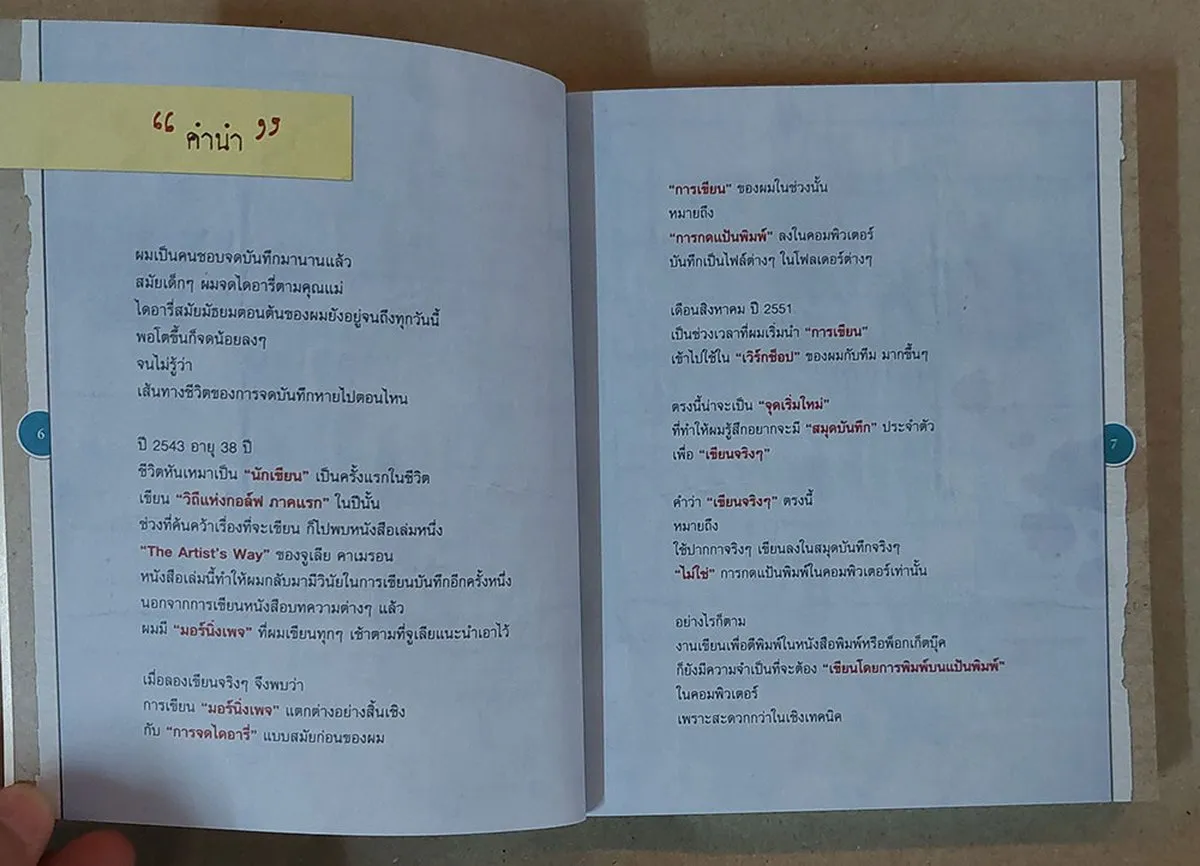 “ คำนำ ”
ผมเป็นคนชอบจดบันทึกมานานแล้ว
สมัยเด็กๆ ผมจดไดอารี่ตามคุณแม่
ไดอารี่สมัยมัธยมตอนต้นของผมยังอยู่จนถึงทุกวันนี้
พอโตขึ้นก็จดน้อยลงๆ
จนไม่รู้ว่า
เส้นทางชีวิตของการจดบันทึกหายไปตอนไหน
ปี 2543 อายุ 38 ปี
ชีวิตหันเหมาเป็น “นักเขียน” เป็นครั้งแรกในชีวิต
เขียน “วิถีแห่งกอล์ฟ ภาคแรก” ในปีนั้น
ช่วงที่ค้นคว้าเรื่องที่จะเขียน ก็ไปพบหนังสือเล่มหนึ่ง
“The Artist's Way” ของจูเลีย คาเมรอน
หนังสือเล่มนี้ทำให้ผมกลับมามีวินัยในการเขียนบันทึกอีกครั้งหนึ่ง
นอกจากการเขียนหนังสือบทความต่างๆ แล้ว
ผมมี “มอร์นิ่งเพจ” ที่ผมเขียนทุกๆ เช้าตามที่จูเลียแนะนำเอาไว้
เมื่อลองเขียนจริงๆ จึงพบว่า
การเขียน “มอร์นิ่งเพจ” แตกต่างอย่างสิ้นเชิง
กับ “การจดไดอารี่” แบบสมัยก่อนของผม
6
“การเขียน” ของผมในช่วงนั้น
หมายถึง
“การกดแป้นพิมพ์” ลงในคอมพิวเตอร์
บันทึกเป็นไฟล์ต่างๆ ในโฟลเดอร์ต่างๆ
เดือนสิงหาคม ปี 2551
เป็นช่วงเวลาที่ผมเริ่มนำ “การเขียน”
เข้าไปใช้ใน “เวิร์กช็อป” ของผมกับทีม มากขึ้นๆ
ตรงนี้น่าจะเป็น “จุดเริ่มใหม่”
ที่ทำให้ผมรู้สึกอยากจะมี “สมุดบันทึก” ประจำตัว
เพื่อ “เขียนจริงๆ”
คำว่า “เขียนจริงๆ” ตรงนี้
หมายถึง
ใช้ปากกาจริงๆ เขียนลงในสมุดบันทึกจริงๆ
“ไม่ใช่” การกดแป้นพิมพ์ในคอมพิวเตอร์เท่านั้น
อย่างไรก็ตาม
งานเขียนเพื่อตีพิมพ์ในหนังสือพิมพ์หรือพ็อกเก็ตบุ๊ค
ก็ยังมีความจำเป็นที่จะต้อง “เขียนโดยการพิมพ์บนแป้นพิมพ์”
ในคอมพิวเตอร์
เพราะสะดวกกว่าในเชิงเทคนิค
7